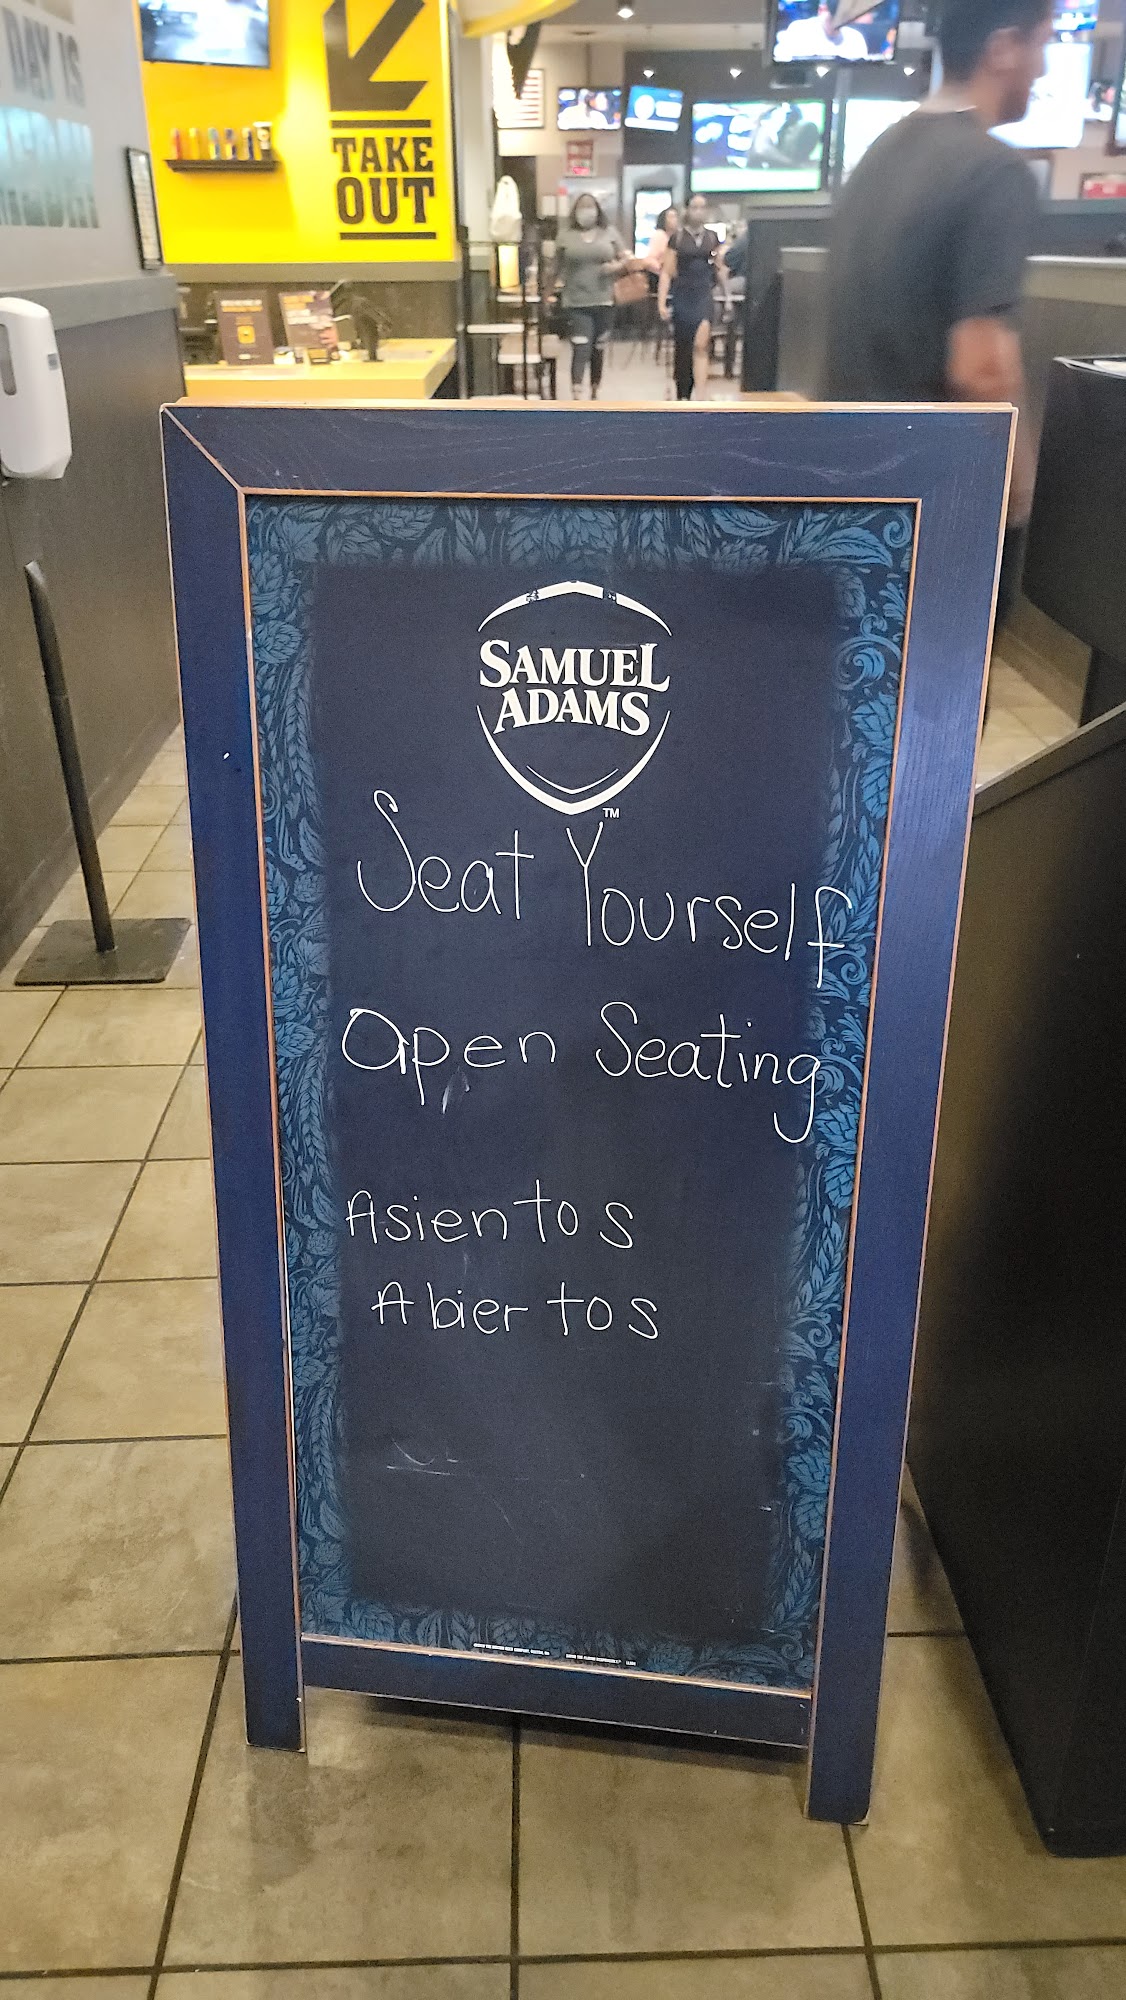 DAY IS
TAKE
OUT
SAMUEL
ADAMS
TM
Seat Yourself
Open Seating
Asientos
Abiertos